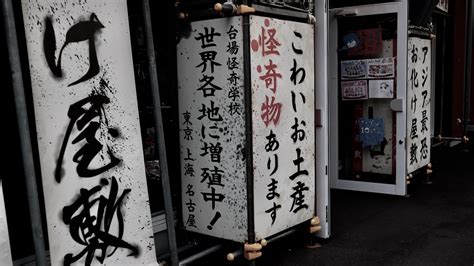 アジア最恐
お化け屋敷
こわいお土産
怪奇物あります
台場怪奇学校
世界各地に増殖中!
東京 上海 名古屋
け屋敷